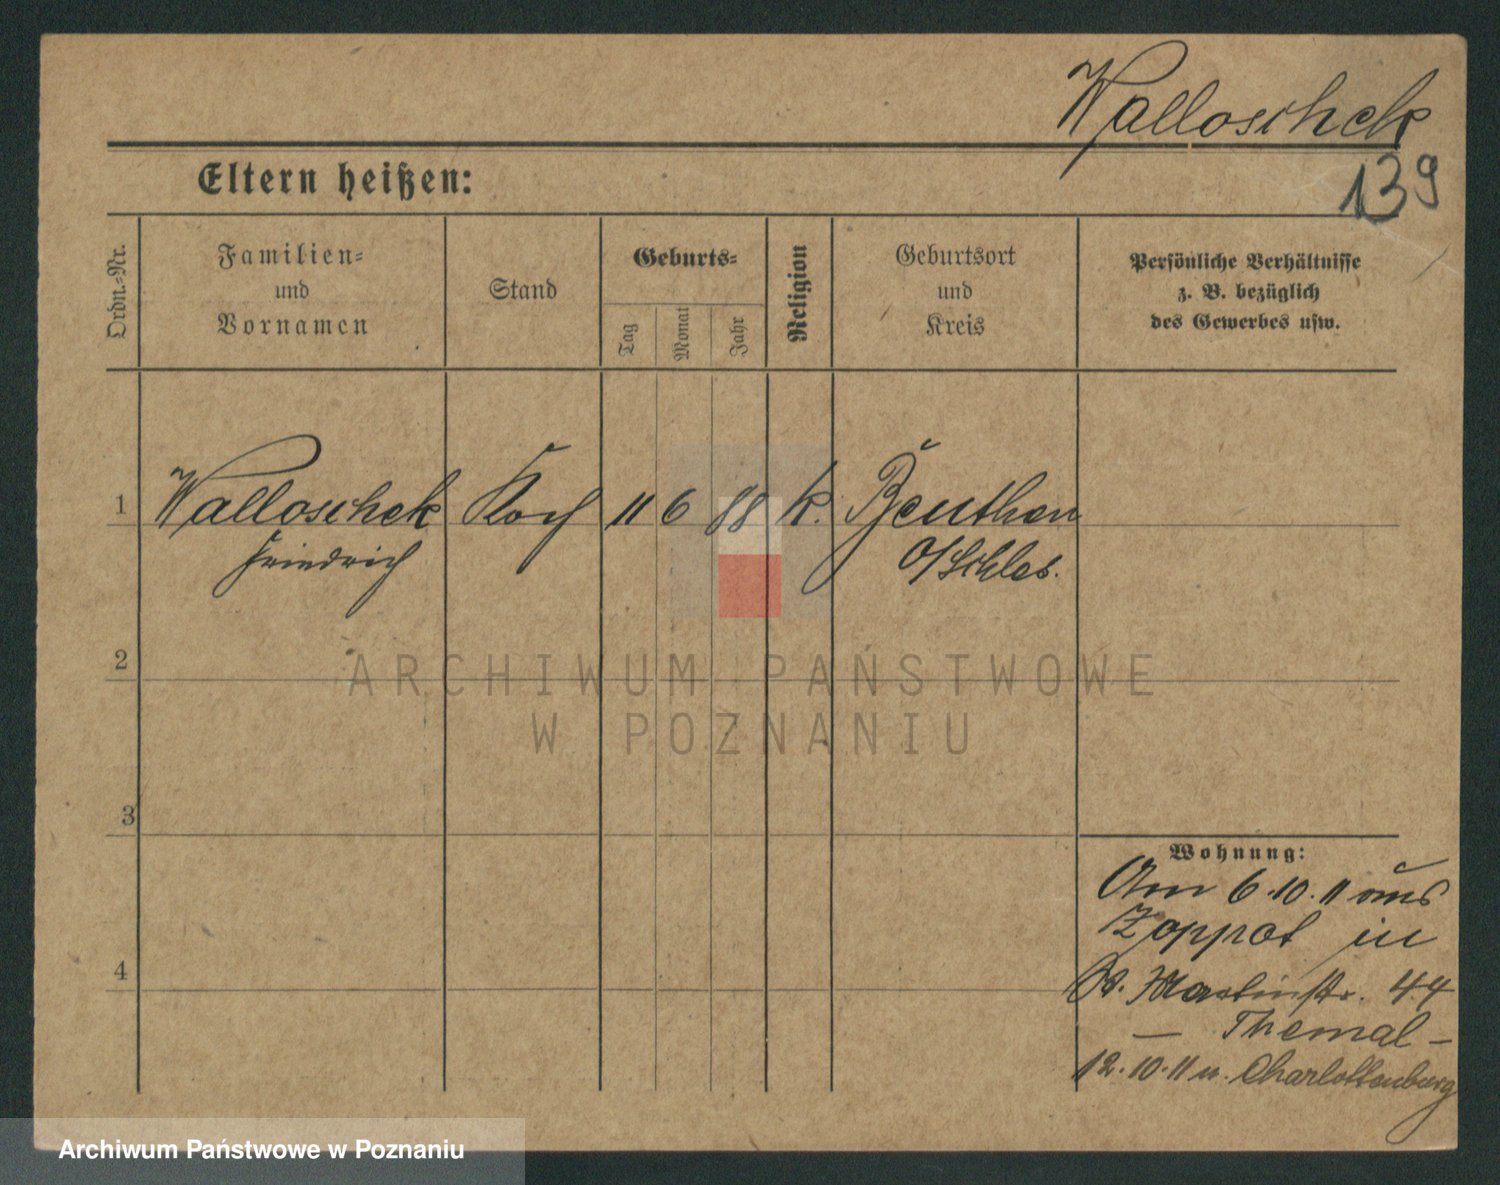 Walloschek
139
Eltern heißen:
Ordn.-Nr.
Familien-
und
Vornamen
Stand
Geburts-
Tag
Monat
Jahr
Religion
Geburtsort
und
Kreis
Persönliche Verhältnisse
z. B. bezüglich
des Gewerbes usw.
1 Walloschek Koch 11 6 88 k. Beuthen
Friedrich O/Schles.
2
3
4
Wohnung:
Am 6.10.11 aus
Zoppot in
St. Martinstr. 44
— Themal —
12.10.11 n. Charlottenburg
ARCHIWUM PAŃSTWOWE
W POZNANIU
Archiwum Państwowe w Poznaniu